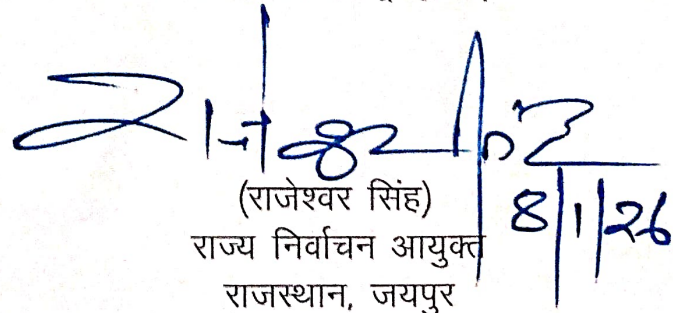 राजेश्वर सिंह
8/1/26
(राजेश्वर सिंह)
राज्य निर्वाचन आयुक्त
राजस्थान, जयपुर